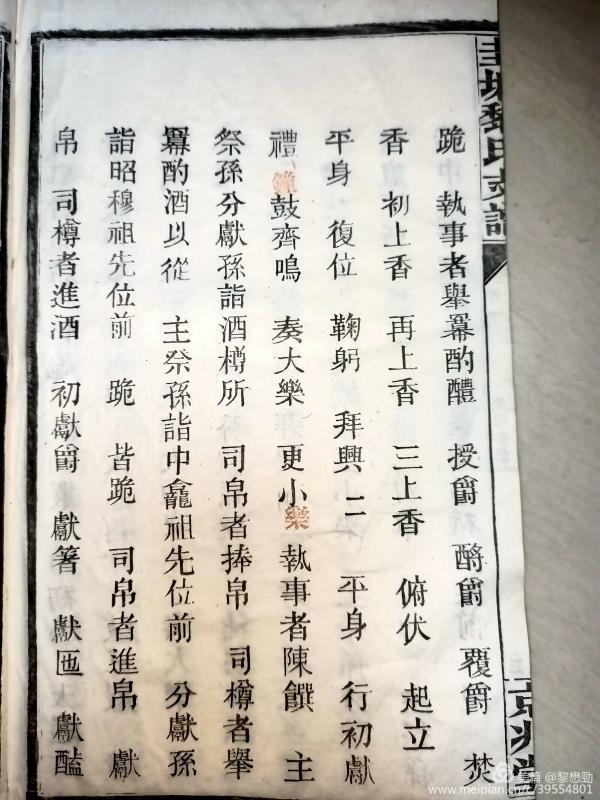 圭塘黎氏支譜
京兆堂
跪中 執事者舉羃酌醴 授爵 酹爵 覆爵 焚
香 初上香 再上香 三上香 俯伏 起立
平身 復位 鞠躬 拜興二 平身 行初獻
禮 鼓齊鳴 奏大樂 更小樂 執事者陳饌 主
祭孫分獻孫詣酒樽所 司帛者捧帛 司樽者舉
羃酌酒以從 主祭孫詣中龕祖先位前 分獻孫
詣昭穆祖先位前 跪 皆跪 司帛者進帛 獻
帛 司樽者進酒 初獻爵 獻箸 獻匜 獻醢
美篇 @黎懋勁
www.meipian.cn/c/39554801